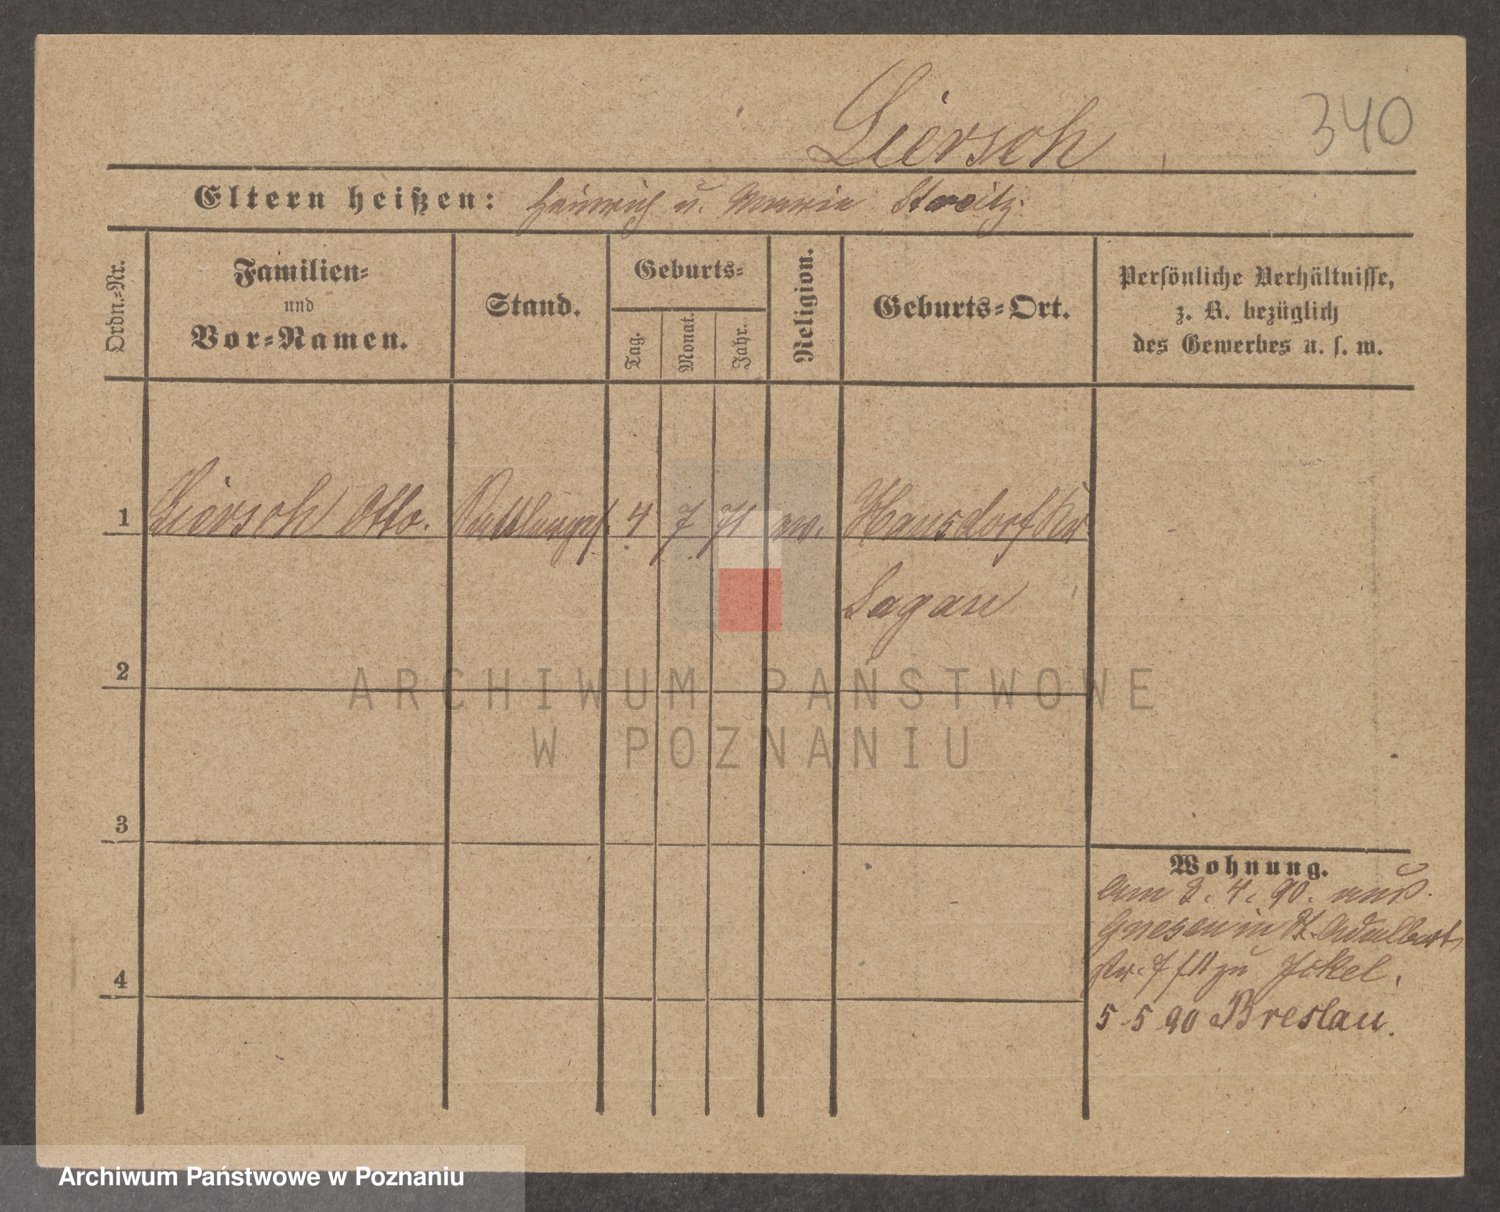 Liersch
340
Eltern heißen: Heinrich u. Maria Streitz.
Ordn.-Nr.
Familien- und Vor-Namen.
Stand.
Geburts-
Tag.
Monat.
Jahr.
Religion.
Geburts-Ort.
Persönliche Verhältnisse,
z. B. bezüglich
des Gewerbes u. s. w.
1 Liersch Otto. 4 7 71 ev. Hansdorf Kr
Sagan
2
3
4
Wohnung.
am 2. 4. 90. aus
Gnesen in St. Adalbert
str. 7 zu Jokel.
5 5 90 Breslau.
ARCHIWUM PAŃSTWOWE
W POZNANIU
Archiwum Państwowe w Poznaniu